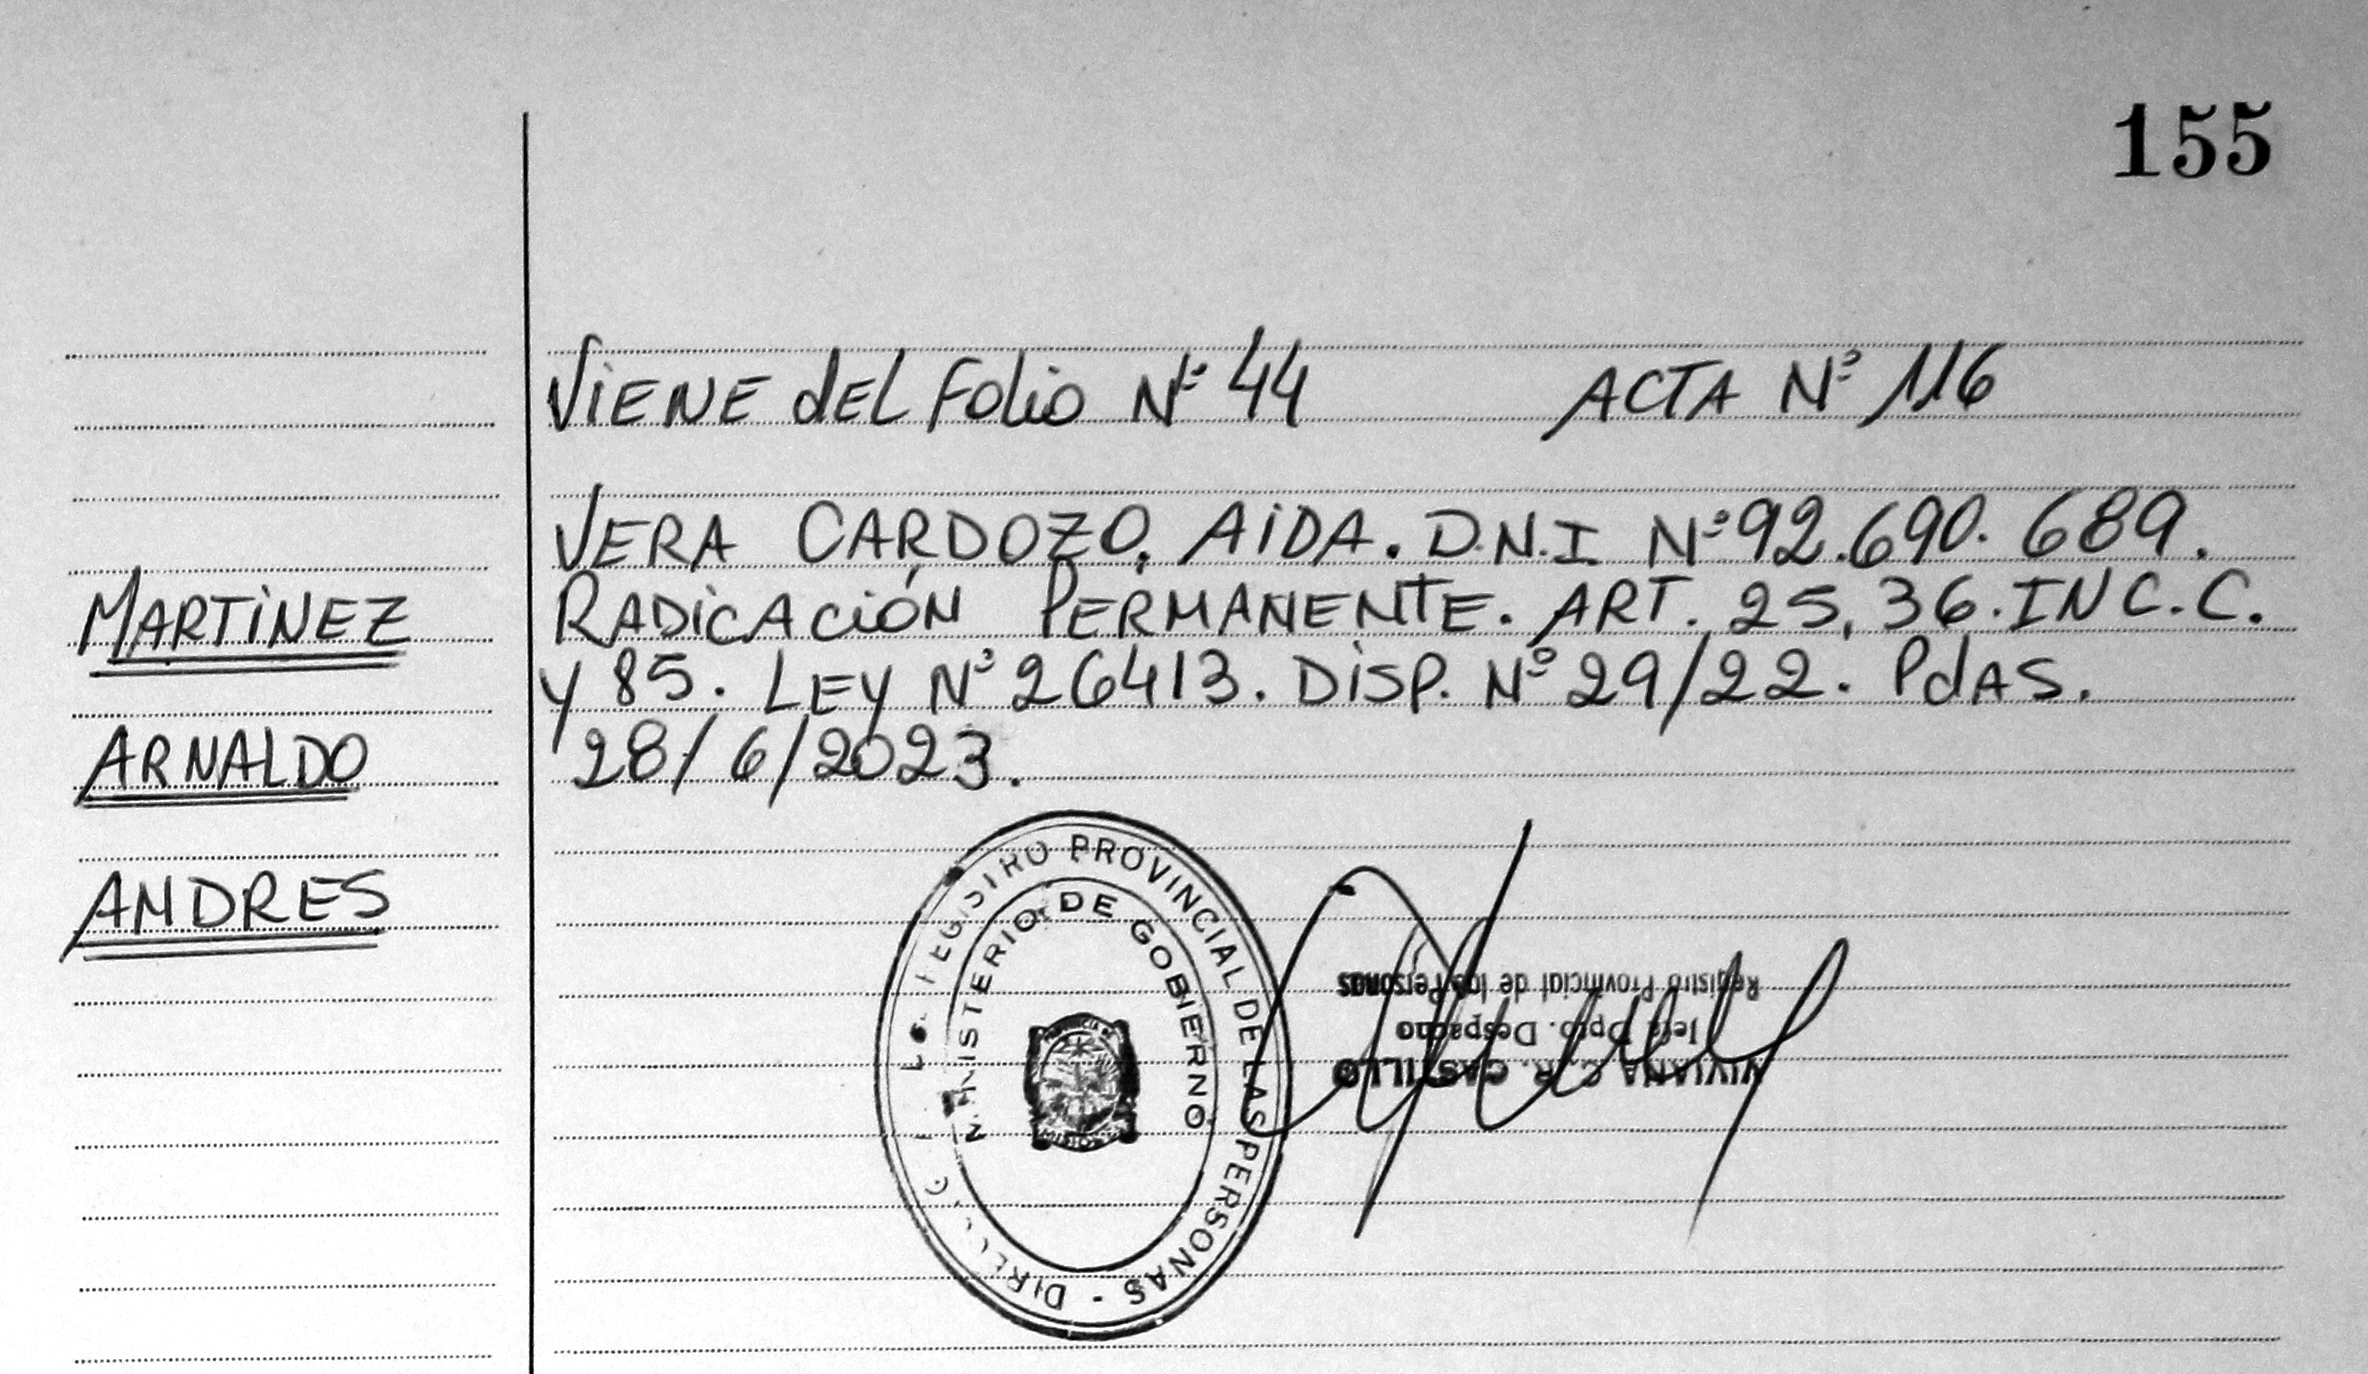 155
VIENE dEL Folio Nº 44 ACTA Nº 116
VERA CARDOZO, AiDA. D.N.I Nº 92.690.689.
MARTiNEZ
RADiCACiÓN PERMANENTE. ART. 25, 36. INC. C.
Y 85. LEY Nº 26413. DiSP. Nº 29/22. PdAS.
ARNALDO
28/6/2023.
ANDRES
REGISTRO PROVINCIAL DE LAS PERSONAS - 
MINISTERIO DE GOBIERNO
VIVIANA C. R. CASTILLO
Jefa Dpto. Despacho
Registro Provincial de las Personas